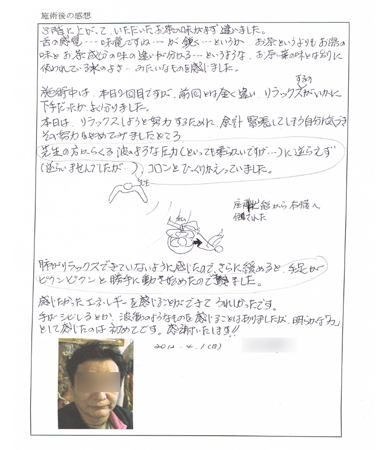 施術後の感想
3階に上がって、いただいたお茶の味がまず違いました。
舌の感覚…味覚ですね…が鋭く…というか、お茶というよりもお湯の
味とお茶成分の味の違いが分かる…というような、お茶葉の味とは別に
使われている水のよさ…みたいなものを感じました。
施術中は、本日2回目ですが、前回とは全く違い、リラックスするのがいかに
下手だったかよく分りました。
本日は、リラックスしようと努力するために、余計緊張してしまう自分に気づき
その努力をやめてみましたところ
先生の方にらくる波のような圧力(といっても柔らかいですが…)に逆らえず
(逆らいませんでしたが…)コロンとひっくりかえっていました。
座禅姿から右横へ
倒れた
肺がリラックスできていないように感じたので、さらに緩めると、手足が
ピクンピクンと勝手に動き始めたので驚きました。
感じたかったエネルギーを感じることができてうれしかったです。
手がシビレるとか、波動のようなものを感じることはありましたが、明らかな「力」
として感じたのは初めてです。感謝いたします!!
2012.4.1(日)